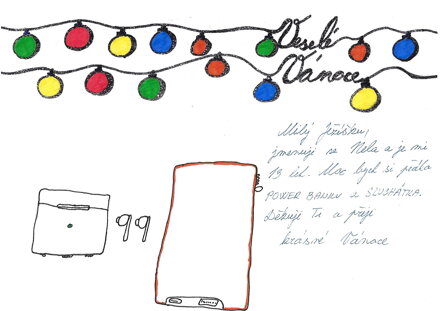 Veselé
Vánoce
Milý Ježíšku,
jmenuji se Nela a je mi
13 let. Moc bych si přála
POWER BANKU a SLUCHÁTKA.
Děkuji Ti a přeji
krásné Vánoce